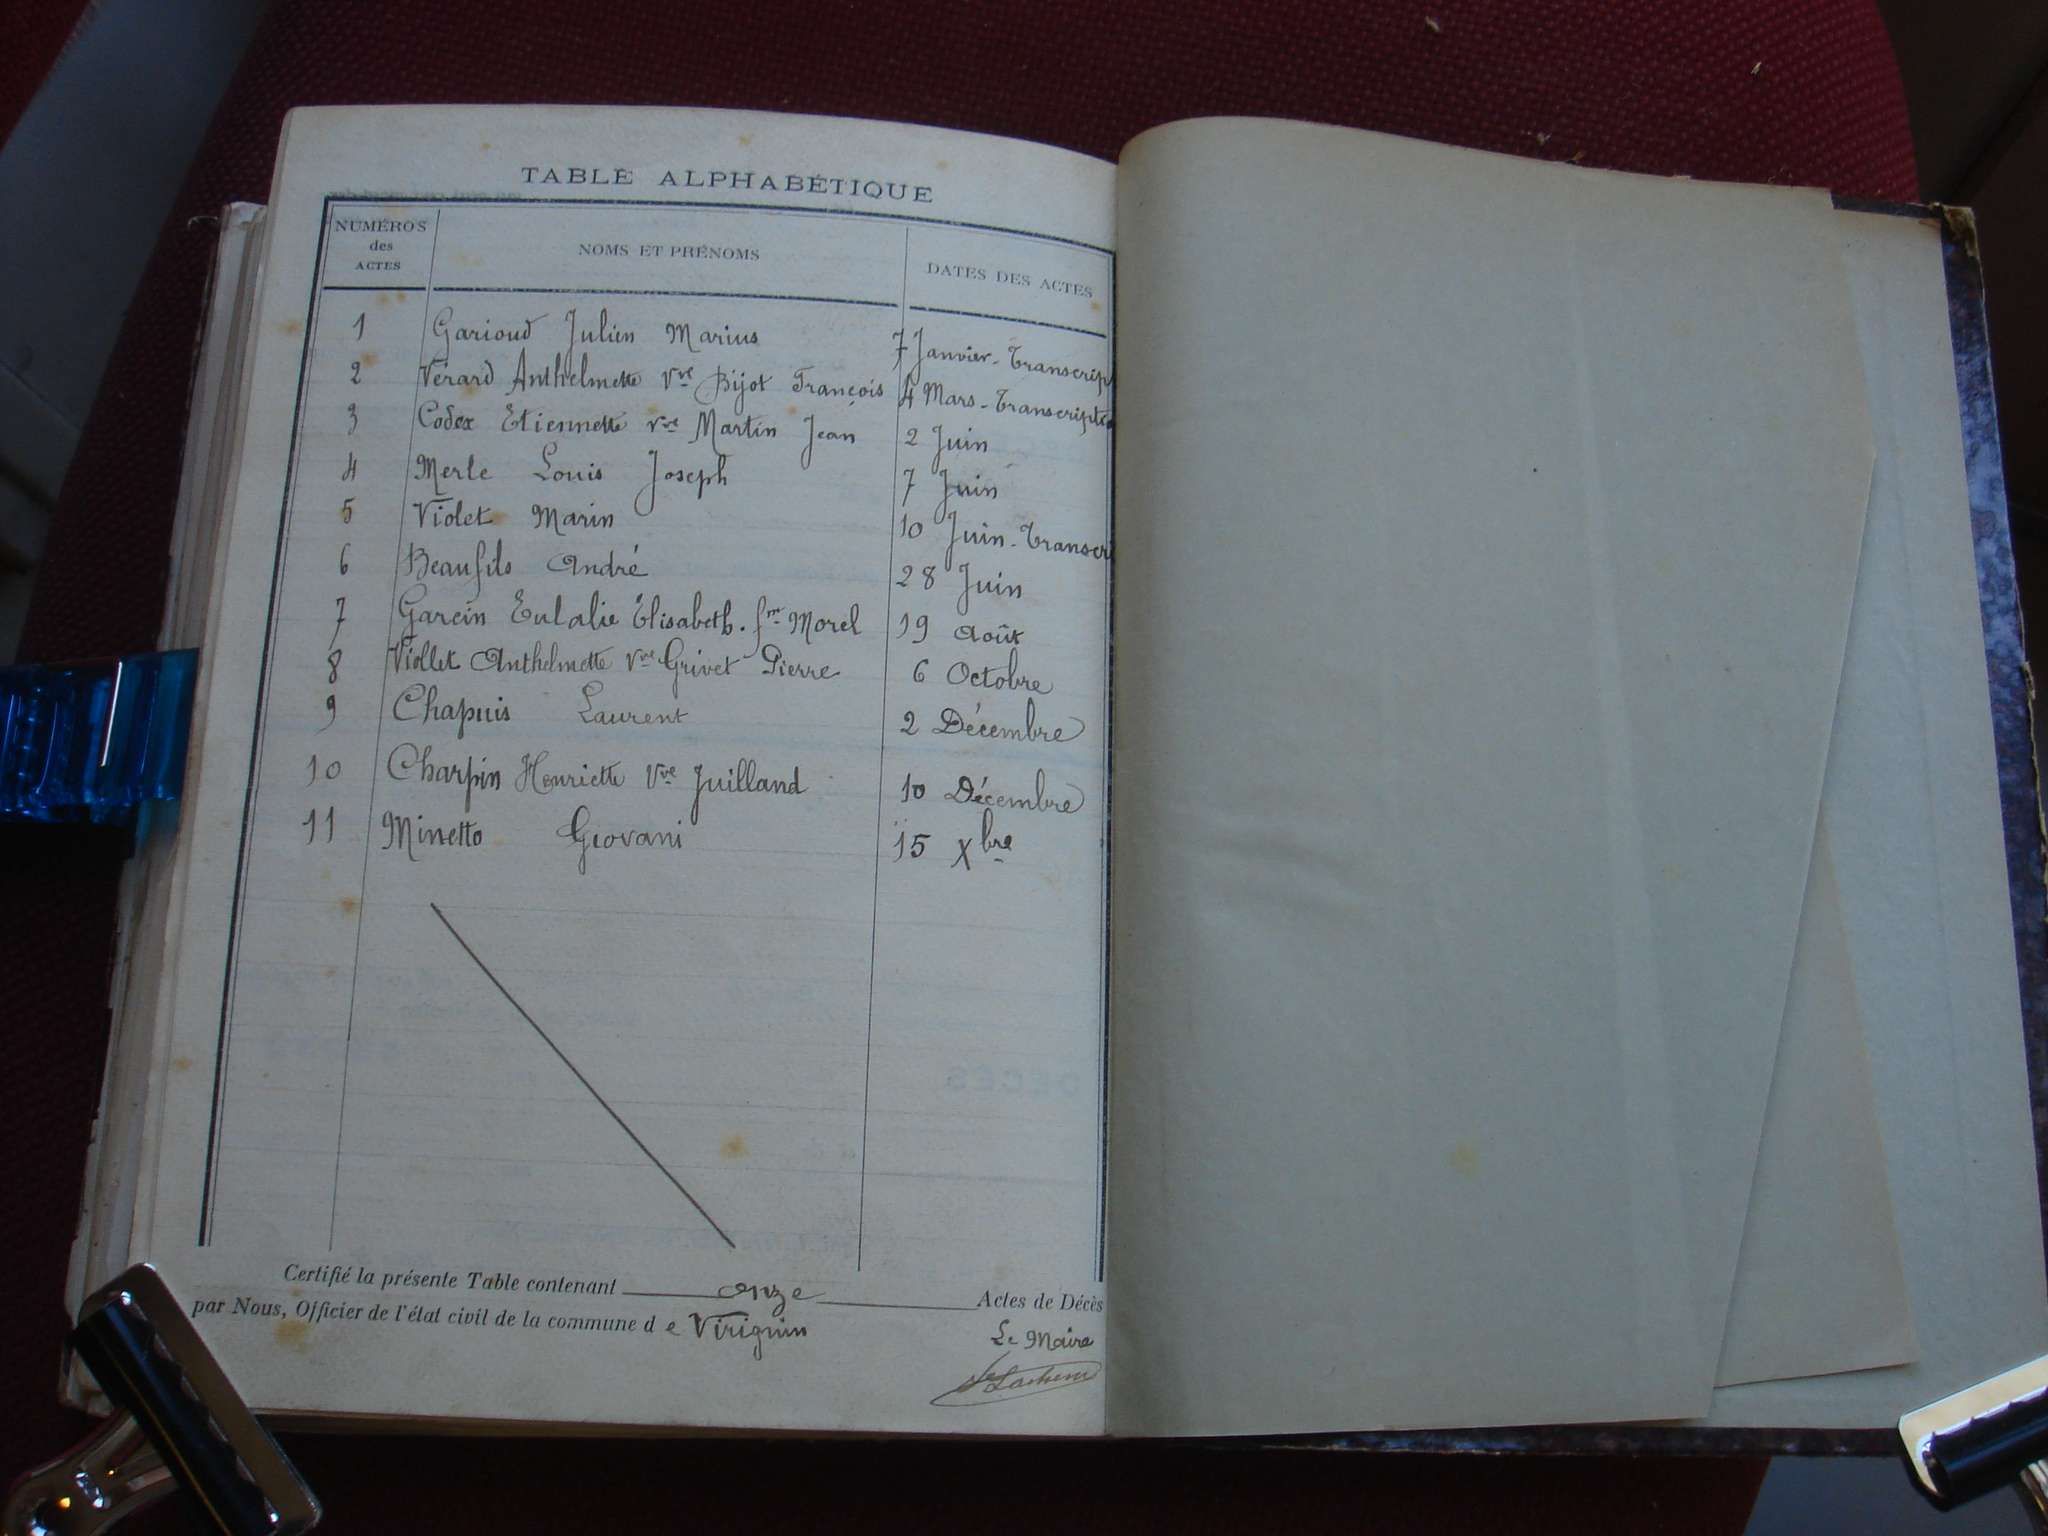 TABLE ALPHABÉTIQUE
NUMÉROS des ACTES NOMS ET PRÉNOMS DATES DES ACTES
1 Garioud Julien Marius 7 Janvier - Transcrip
2 Vérard Anthelmette Vve Bijot François 4 Mars - Transcriptio
3 Codex Etiennette vve Martin Jean 2 Juin
4 Merle Louis Joseph 7 Juin
5 Violet Marin 10 Juin - Transcri
6 Beaufils André 28 Juin
7 Garcin Eulalie Élisabeth. fme Morel 19 Août
8 Viollet Anthelmette Vve Grivet Pierre 6 Octobre
9 Chapuis Laurent 2 Décembre
10 Charpin Henriette Vve Juilland 10 Décembre
11 Minetto Giovani 15 Xbre
Certifié la présente Table contenant onze Actes de Décès
par Nous, Officier de l'état civil de la commune de Virignin
Le Maire